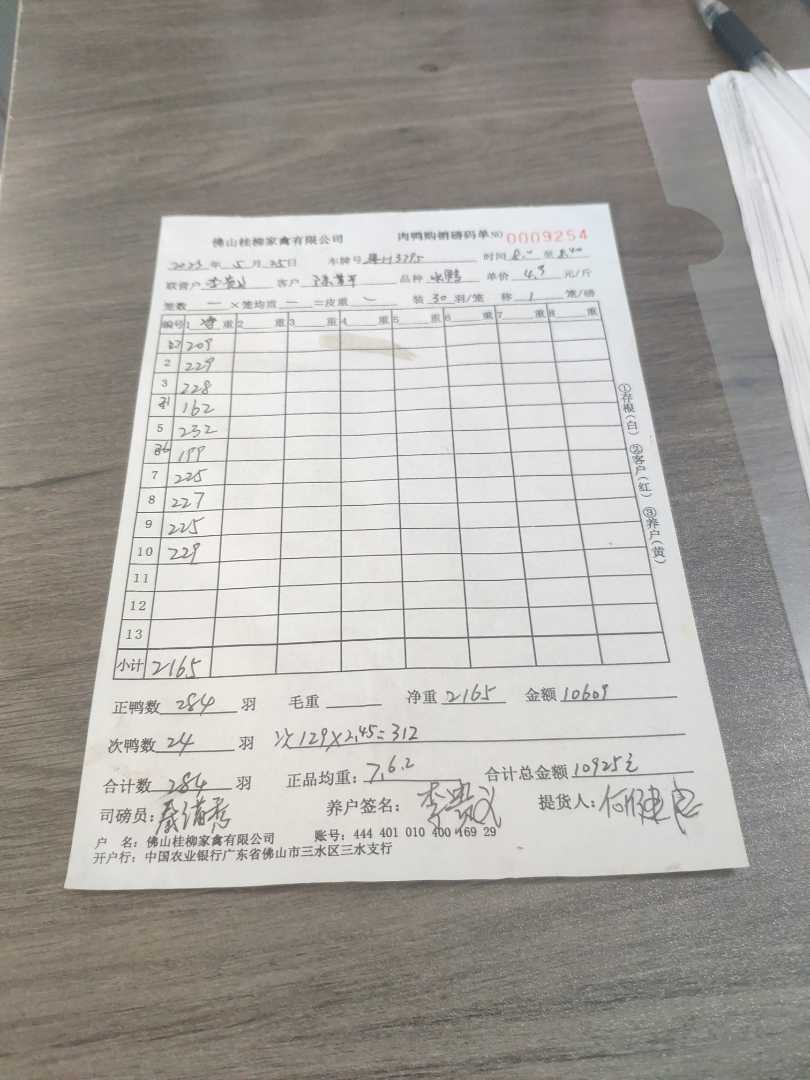 佛山桂柳家禽有限公司 肉鸭购销磅码单 NO 0009254
2023 年 5 月 25 日 车牌号 时间 8: 至 8:40
联营户 客户 品种 单价 4.9 元/斤
笼数 一 ×笼均重 一 =皮重 装 30 羽/笼 称 1 笼/磅
编号 1 净 重 2 重 3 重 4 重 5 重 6 重 7 重 8 重
209
2 229
3 228
162
5 232
199
7 225
8 227
9 225
10 229
11
12
13
小计 2165
正鸭数 284 羽 毛重 净重 2165 金额 10609
次鸭数 24 羽 次129×2.45=312
合计数 284 羽 正品均重: 7.6.2 合计总金额 10925元
司磅员: 养户签名: 李 提货人: 何
户 名: 佛山桂柳家禽有限公司 账号: 444 401 010 400 169 29
开户行: 中国农业银行广东省佛山市三水区三水支行
①存根(白) ②客户(红) ③养户(黄)